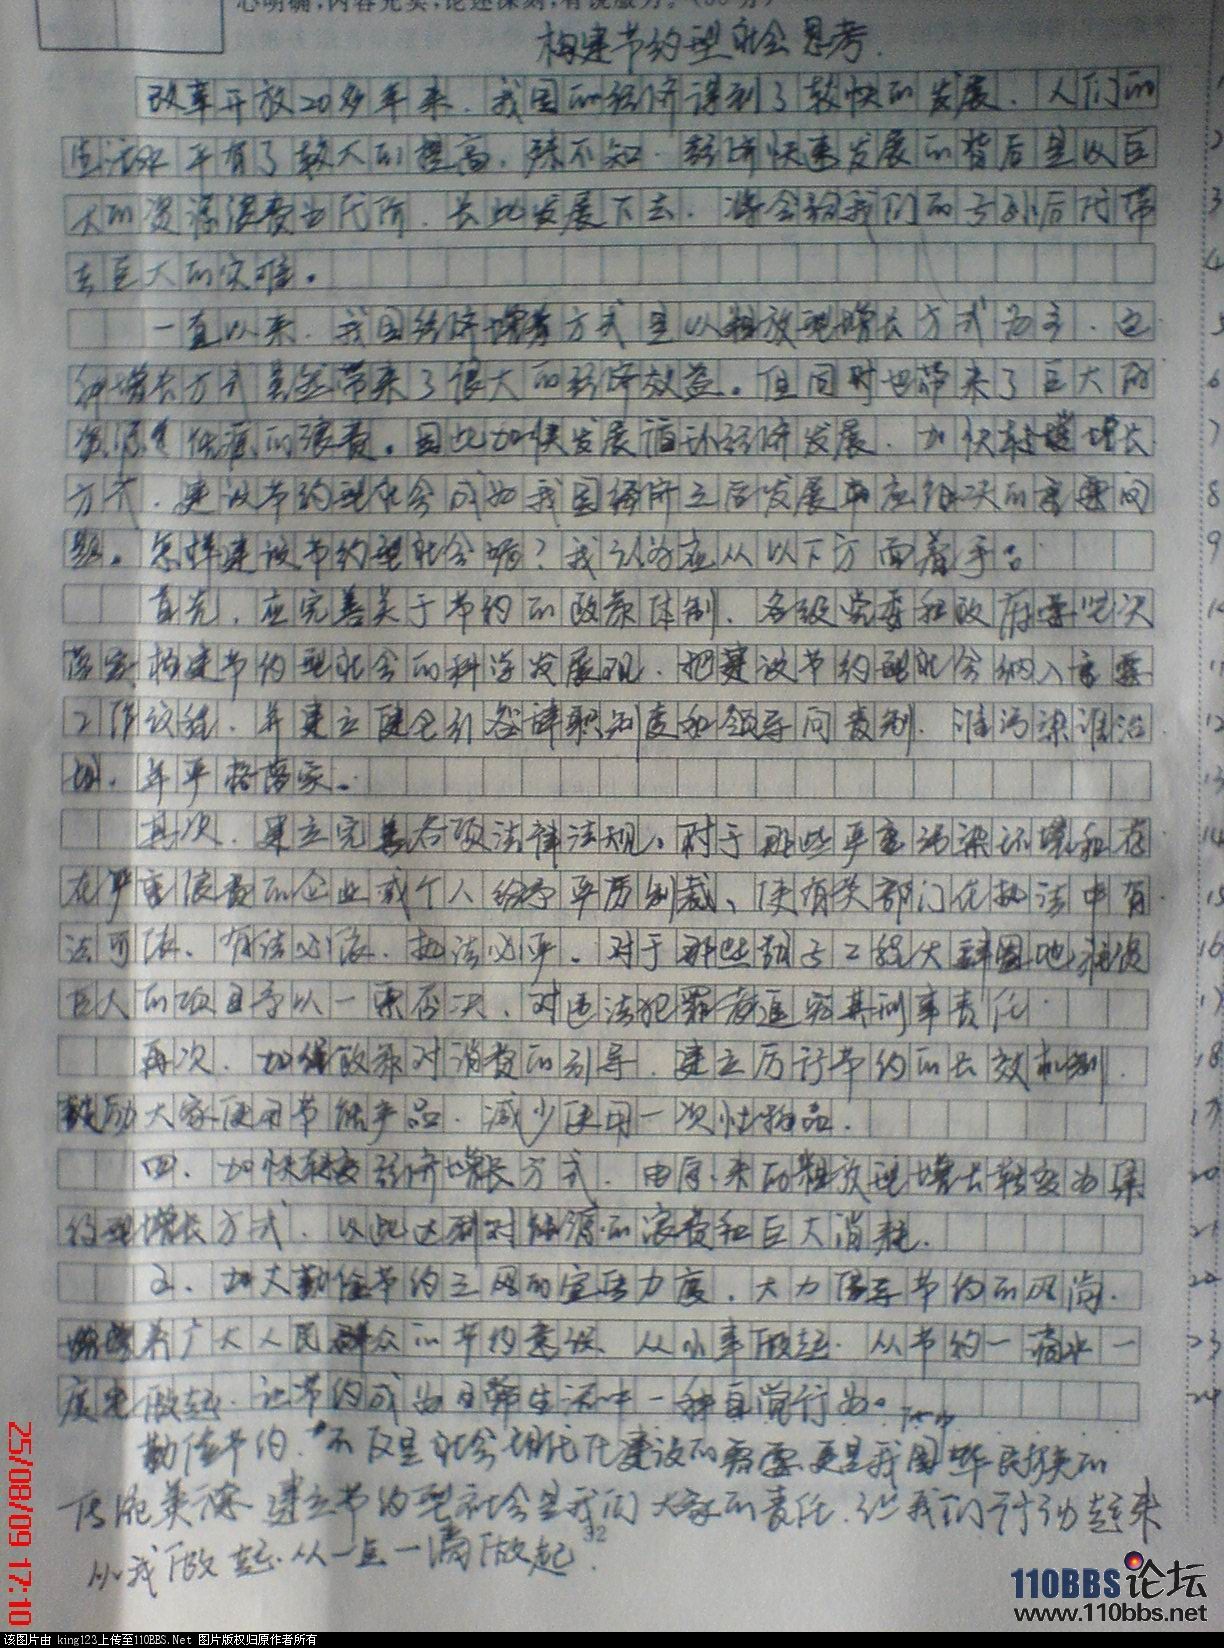 心明确,内容充实,论述深刻,有说服力。
构建节约型社会思考.
改革开放20多年来,我国的经济得到了较快的发展,人们的
生活水平有了较大的提高,殊不知,经济快速发展的背后是以巨
大的资源浪费为代价,长此发展下去,将会给我们的子孙后代带
去巨大的灾难。
一直以来,我国经济增长方式是以粗放型增长方式为主,这
种增长方式虽然带来了很大的经济效益。但同时也带来了巨大的
资源 能源的浪费。因此加快发展循环经济发展,加快转变增长
方式,建设节约型社会成为我国经济之后发展中应解决的重要问
题。怎样建设节约型社会呢?我认为应从以下方面着手:
首先,应完善关于节约的政策体制,各级党委和政府要坚决
落实构建节约型社会的科学发展观,把建设节约型社会纳入重要
工作议程,并建立健全引咎辞职制度和领导问责制,谁污染谁治
理,并严格落实。
其次,建立完善各项法律法规,对于那些严重污染环境和存
在严重浪费的企业或个人给予严厉制裁、使有关部门在执法中有
法可依、有法必依、执法必严。对于那些面子工程大
巨大的项目予以一票否决,对违法犯罪者追究其刑事责任.
再次,加强政策对消费的引导,建立厉行节约的长效机制,
鼓励大家使用节能产品,减少使用一次性物品.
四、加快转变经济增长方式,由原来的粗放型增长转变为集
约型增长方式,以此达到对能源的浪费和巨大消耗.
五、加大勤俭节约之风的宣传力度,大力倡导节约的风尚.
增强广大人民群众的节约意识,从小事做起,从节约一滴水一
度电做起,让节约成为日常生活中一种自觉行为。
勤俭节约,不仅是社会现代化建设的需要更是我国华民族的
传统美德 建立节约型社会是我们大家的责任,让我们行动起来
从我做起,从一点一滴做起.
32
5
6
7
8
9
12
14
15
16
18
20
21
22
23
24
25/08/09 17:10
110BBS论坛
www.110bbs.net
该图片由 king123上传至110BBS.Net 图片版权归原作者所有